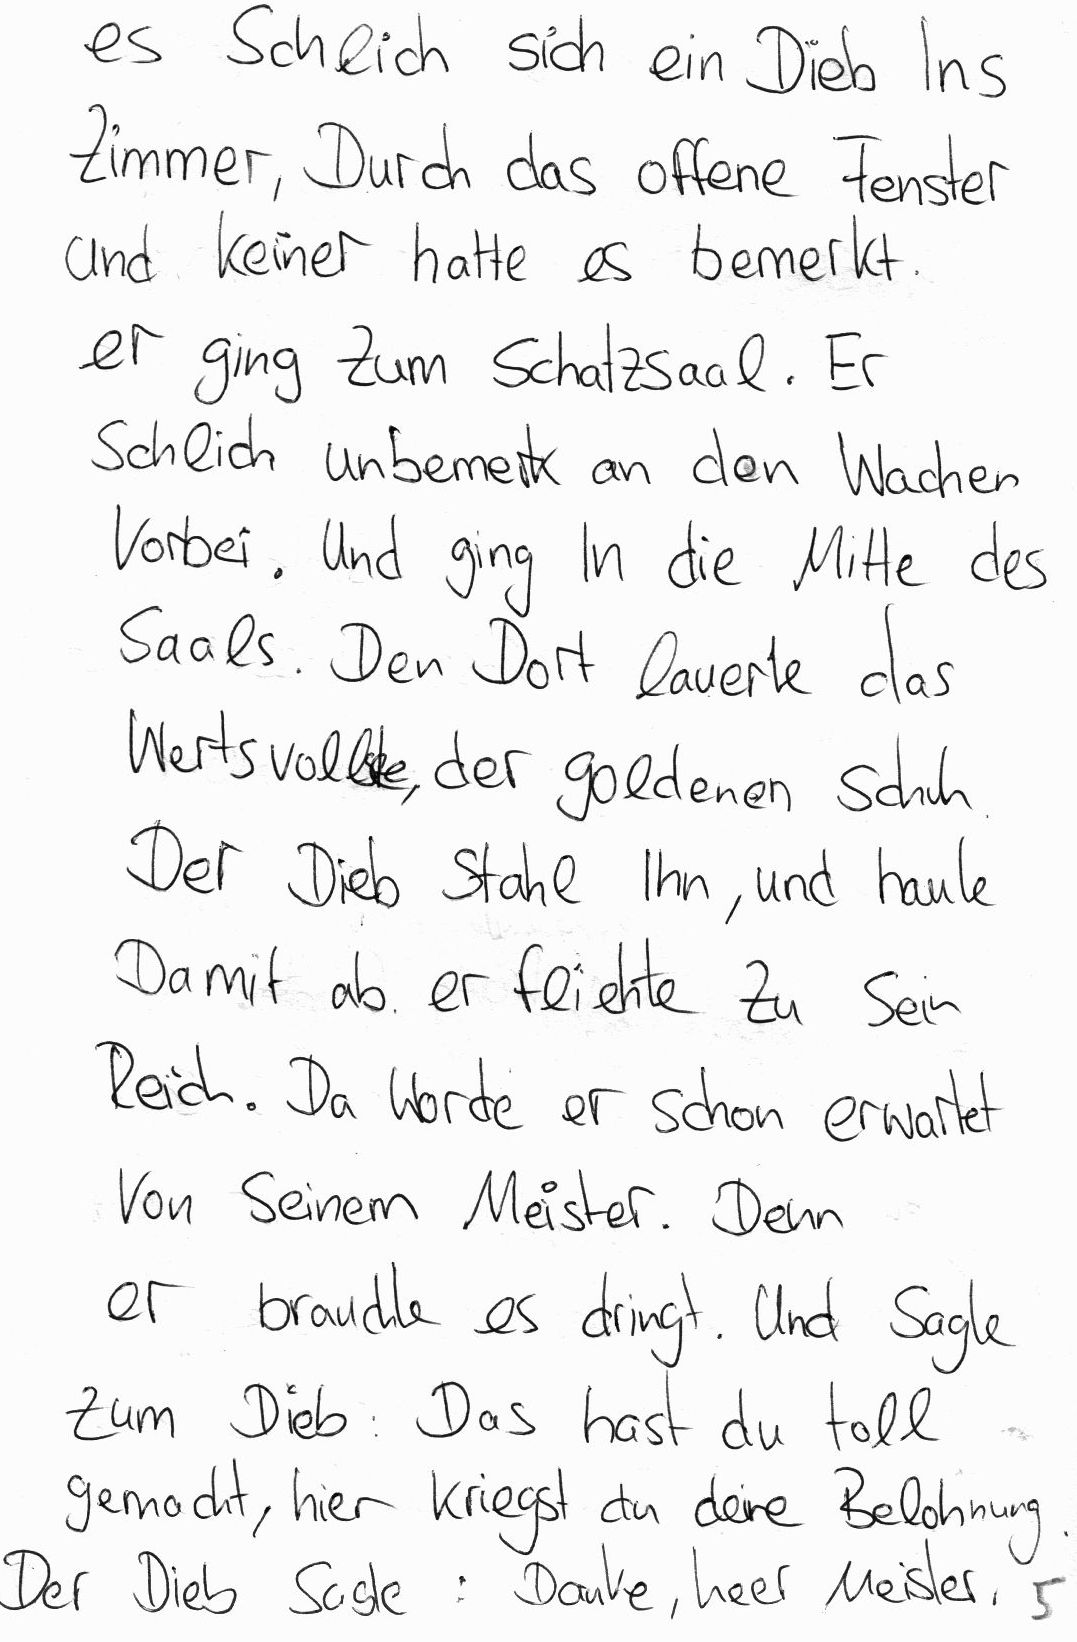 es Schleich sich ein Dieb Ins
Zimmer, Durch das offene Fenster
und keiner hatte es bemerkt.
er ging zum Schatzsaal. Er
Schleich unbemerk an den Wachen
Vorbei. Und ging In die Mitte des
Saals. Den Dort lauerte das
Wertsvollste, der goldenen Schuh.
Der Dieb Stahl Ihn, und haute
Damit ab. er fliehte zu Sein
Reich. Da Worde er schon erwartet
Von Seinem Meister. Denn
er brauchte es dringt. Und Sagte
zum Dieb: Das hast du toll
gemacht, hier kriegst du deine Belohnung.
Der Dieb Sagte: Danke, heer Meister. 5